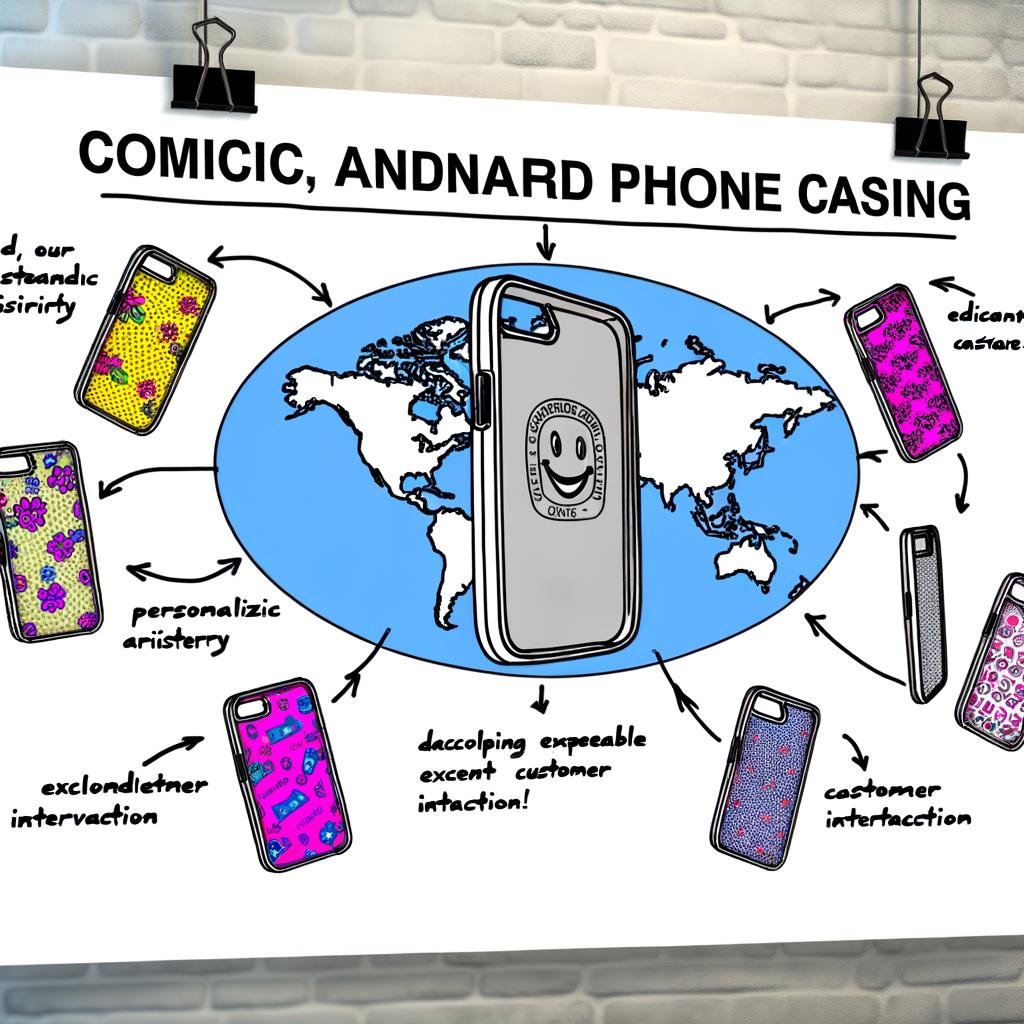 COMICIC, ANDNARD PHONE CASING
d, our
steandic
isirirty
edicant
castare.
personalizic
ariisterry
exclondietner
intervaction
daccolping expeeable
excent customer
intaction!
castomer
intertacction